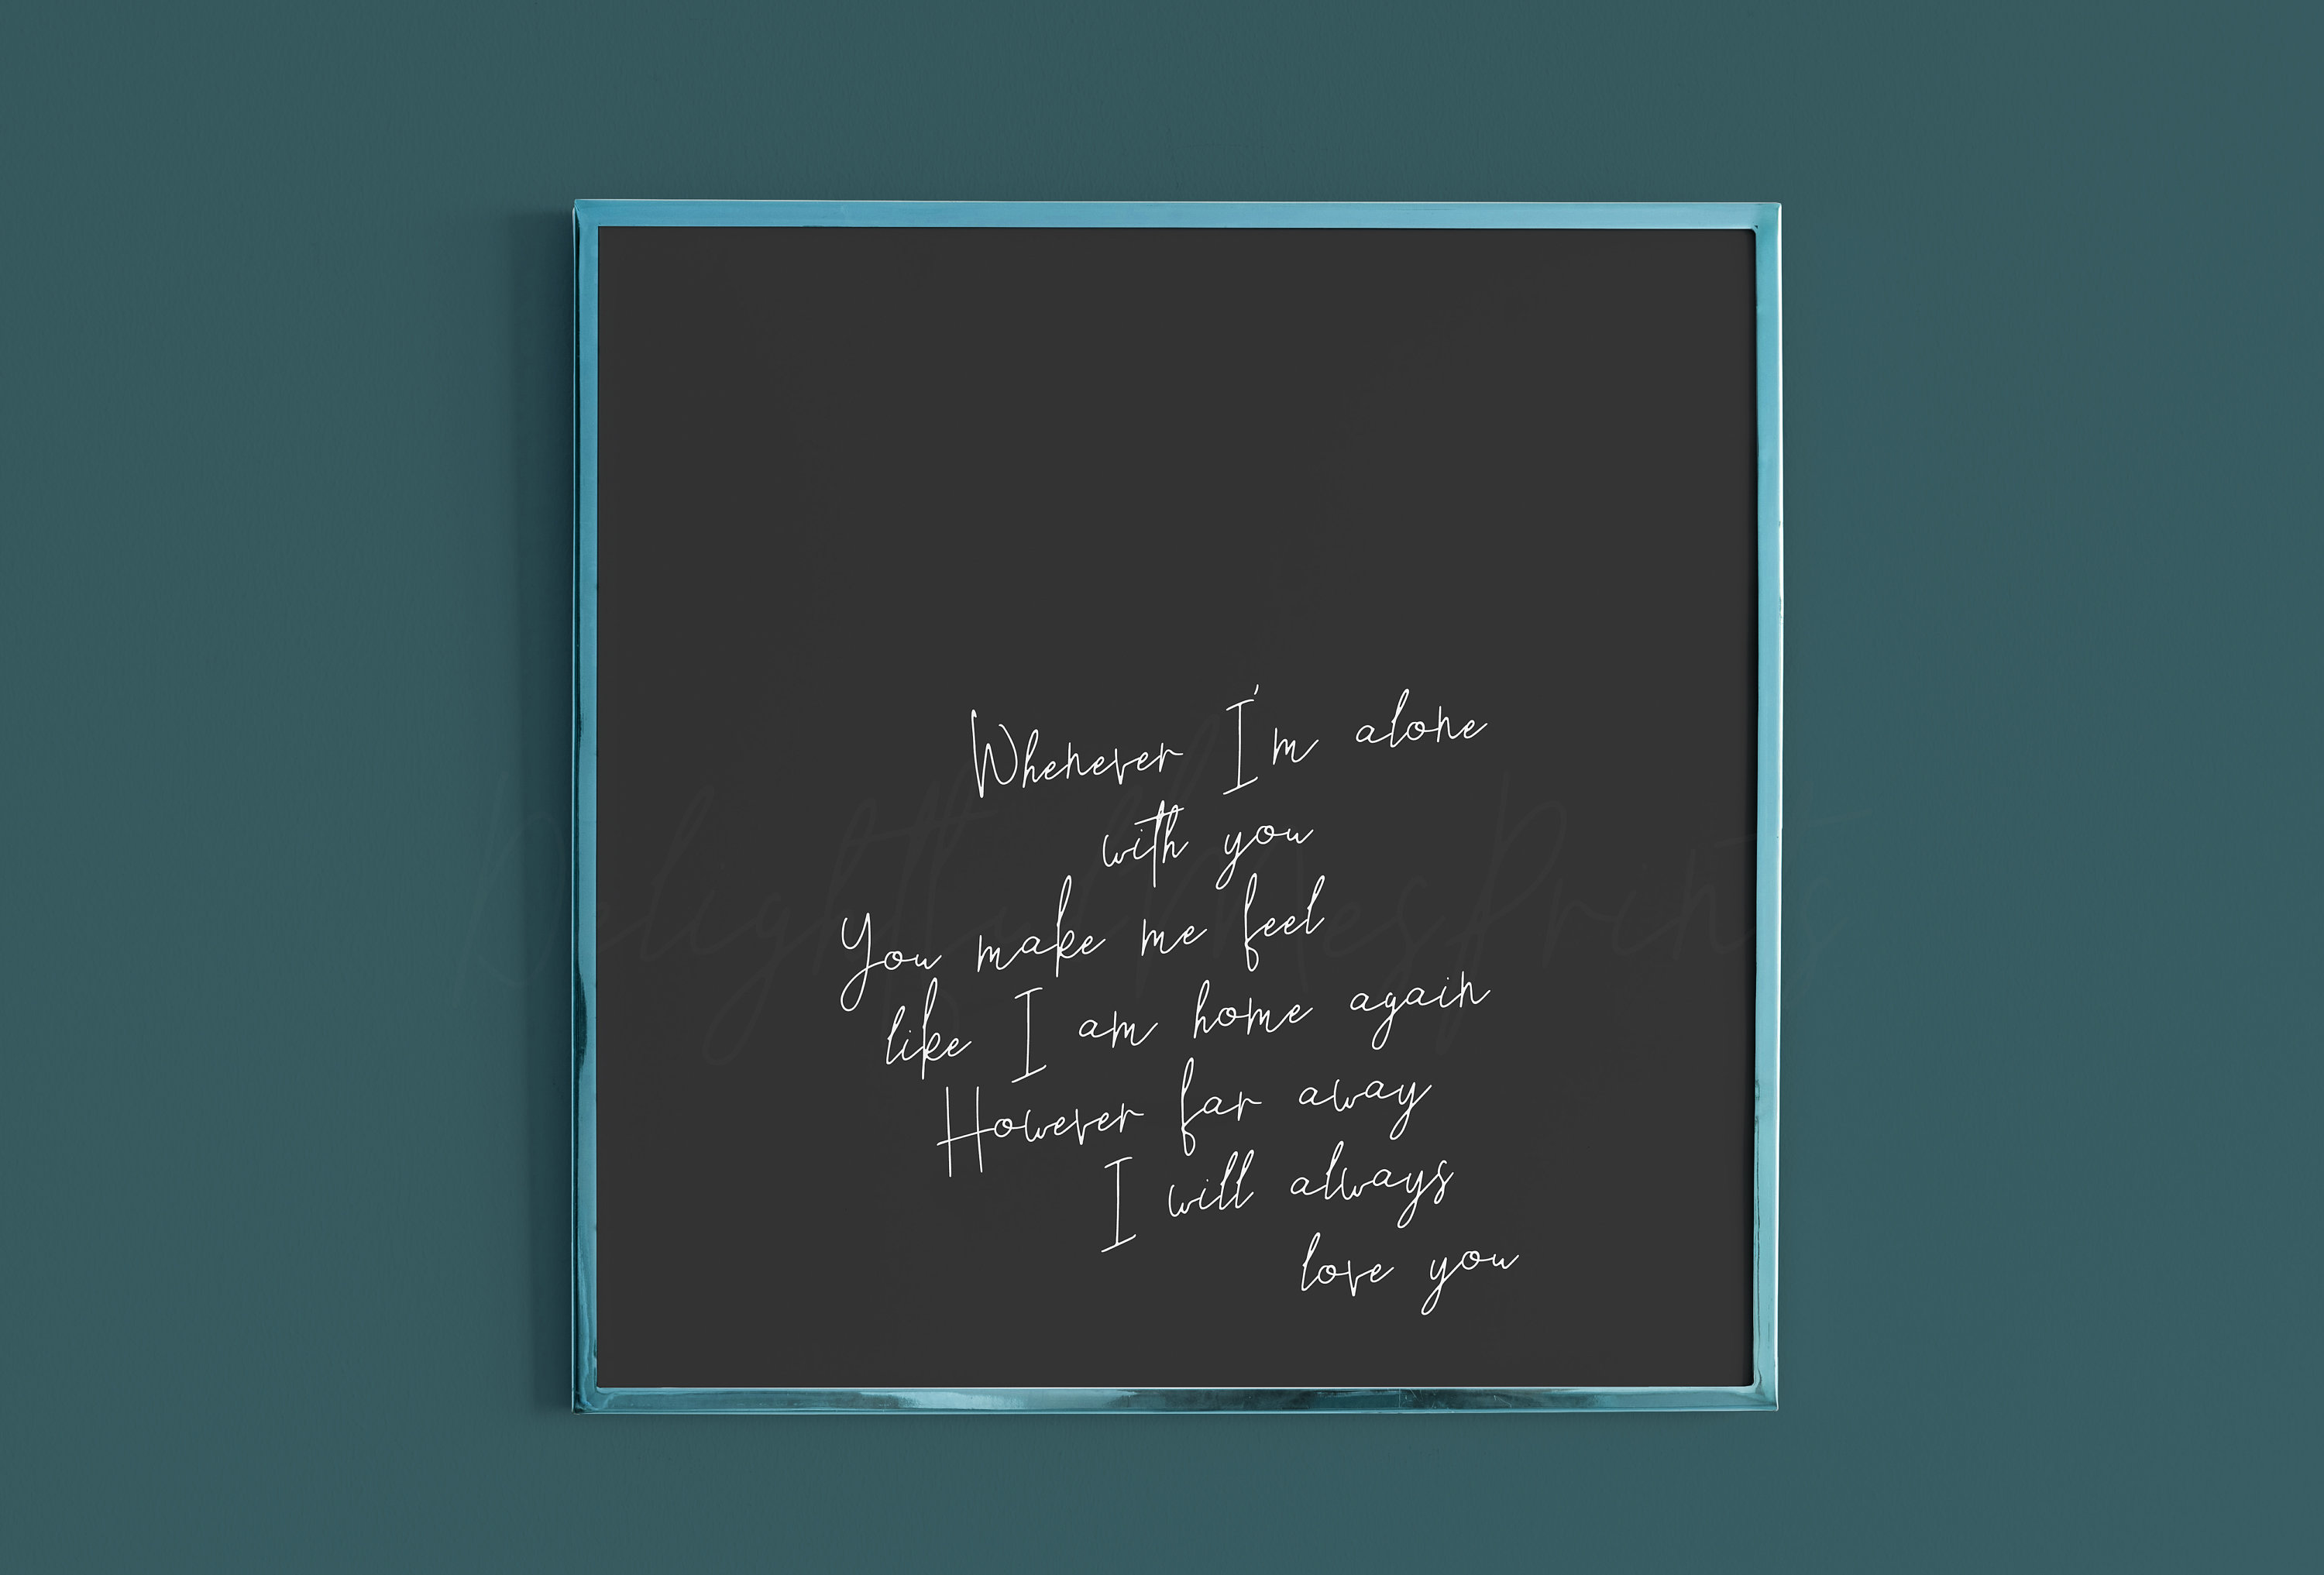 Whenever I'm alone
with you
You make me feel
like I am home again
However far away
I will always
love you
DelightfulMesPrints